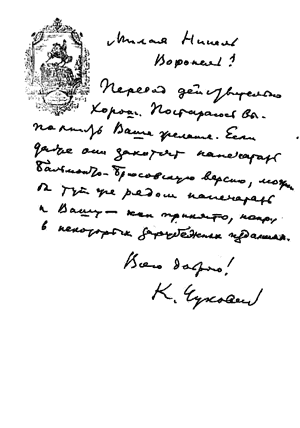 Милая Нинель
Воронель!
Перевод действительно
хорош. Постараюсь вы-
полнить Ваше желание. Если
даже они захотят напечатать
бальмонто-брюсовскую версию, можно
бы тут же рядом напечатать
и Вашу — как принято,
в некоторых зарубежных изданиях.
Всего доброго!
К. Чуковский